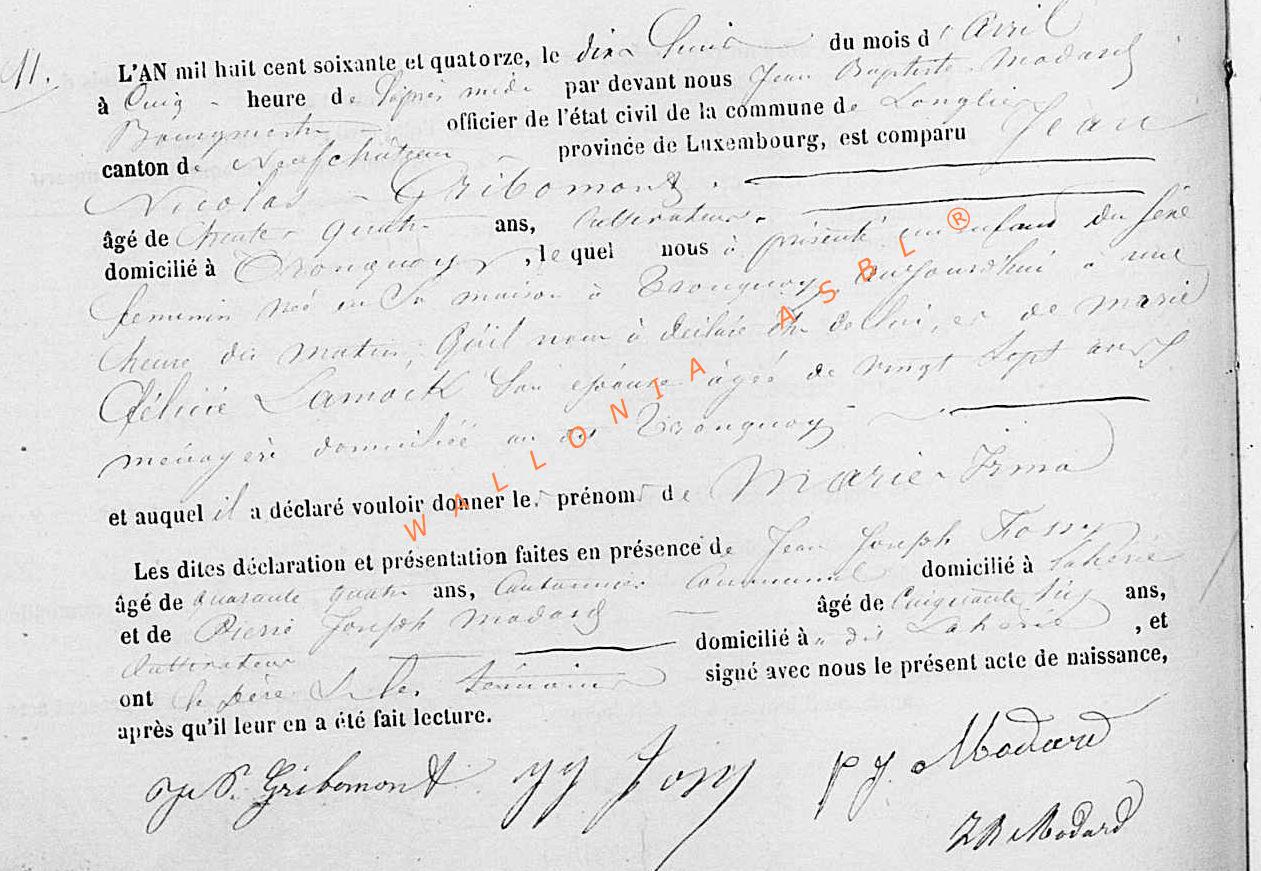 11.
L'AN mil huit cent soixante et quatorze, le dix huit du mois d'Avril
à Cinq heure de l'après midi par devant nous Jean Baptiste Modard
Bourgmestre officier de l'état civil de la commune de Longlier
canton de Neufchâteau province de Luxembourg, est comparu Jean
Nicolas Gribomont
âgé de trente quatre ans, Cultivateur
domicilié à Tronquoy, le quel nous à présenté un enfant du sexe
feminin née en sa maison à Tronquoy, aujourd'hui à une
heure du matin, qu'il nous à declaré être de lui, et de marie
félicié Lamock son épouse âgée de vingt sept ans
ménagère domiciliée au dit Tronquoy
et auquel il a déclaré vouloir donner les prénoms de Marie Irma
Les dites déclaration et présentation faites en présence de Jean Joseph Fossy
âgé de quarante quatre ans, Cantonnier Communal domicilié à Laherie
et de Pierre Joseph Modard âgé de Cinquante six ans,
Cultivateur domicilié à dit Laherie, et
ont le père & les témoins signé avec nous le présent acte de naissance,
après qu'il leur en a été fait lecture.
Gribomont JJ Fossy PJ Modard
JB Modard
WALLONIA ASBL ®